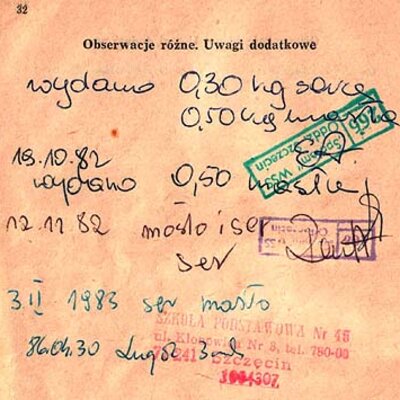 32
Obserwacje różne. Uwagi dodatkowe
wydano 0,30 kg sera
0,50 kg masła
"Społem" WSS
Oddz. Szczecin
18.10.82
wydano 0,50 masła
12.11.82 masło i ser
ser
3 II 1983 ser masło
SZKOŁA PODSTAWOWA Nr 48
Nr 8, tel. 780-00
86.04.30
241 Szczecin